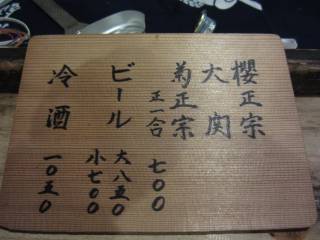 櫻正宗
大関
菊正宗
正一合 七〇〇
ビール 大八五〇
小七〇〇
冷酒 一〇五〇